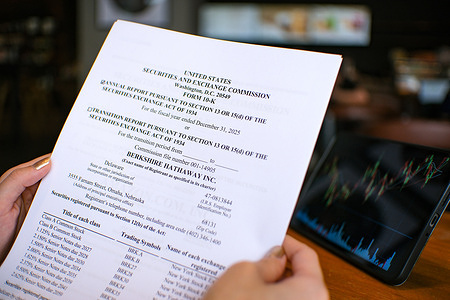 UNITED STATES
SECURITIES AND EXCHANGE COMMISSION
Washington, D.C. 20549
FORM 10-K
☑ANNUAL REPORT PURSUANT TO SECTION 13 OR 15(d) OF THE
SECURITIES EXCHANGE ACT OF 1934
For the fiscal year ended December 31, 2025
☐TRANSITION REPORT PURSUANT TO SECTION 13 OR 15(d) OF THE
SECURITIES EXCHANGE ACT OF 1934
For the transition period from ____ to ____
Commission file number 001-14905
BERKSHIRE HATHAWAY INC.
(Exact name of Registrant as specified in its charter)
Delaware
State or other jurisdiction of
incorporation or organization
47-0813844
(I.R.S. Employer
Identification No.)
3555 Farnam Street, Omaha, Nebraska
(Address of principal executive offices)
68131
(Zip Code)
Registrant's telephone number, including area code (402) 346-1400
Securities registered pursuant to Section 12(b) of the Act:
Title of each class
Trading Symbols
Name of each exchange
registered
Class A Common Stock
BRK.A
New York Stock
Class B Common Stock
BRK.B
New York Stock